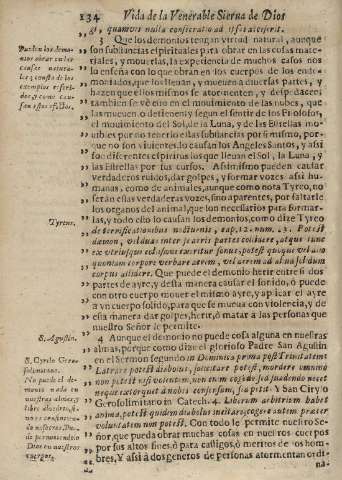 134 Vida de la Venerable Sierva de Dios
gi, quamvis nulla consecratio ad ipsi accesserit.
3 Que los demonios tengan virtud natural, aunque
son substancias espirituales para obrar en las cosas mate-
riales, y moverlas, la experiencia de muchos casos nos
lo enseña con lo que obran en los cuerpos de los ende-
moniados, que los llenan, y mueven a diversas partes, y
hazen que ellos mismos se atormenten, y despedacen;
tambien se vè en el movimiento de las nubes, que
las mueven, o detienen; y segun el sentir de los Filosofos,
el movimiento del Sol, de la Luna, y de las Estrellas mo-
vibles por no tenerlo estas substancias por si mismo, por-
que no son vivientes, lo causan los Angeles Santos, y assi
son diferentes espiritus los que llevan el Sol, la Luna, y
las Estrellas por sus cursos. Assimismo pueden causar
verdaderos ruidos, dar golpes, y formar vozes assi hu-
manas, como de animales, aunque como nota Tyreo, no
seràn estas verdaderas vozes, sino aparentes, por faltarle
los organos del animal, que son necessarios para formar-
las, y todo esto lo causan los demonios, como dize Tyreo
de terrificationibus nocturnis, cap. 12. num. 13. Potest
dæmon, vel duas inter se aeris partes collidere, atque tunc
ex utriusque collisione excitatur sonus, potest quoque vel ali-
quod tam corpore verberare aerem, vel aerem ad aliud solidum
corpus allidere. Que puede el demonio herir entre si dos
partes de ayre, y desta manera causar el sonido, ò puede
con otro cuerpo mover el mismo ayre, y aplicar el ayre
a vn cuerpo solido, para que se mueva con violencia, y de
esta manera dar golpes, herir, ò matar a las personas que
nuestro Señor le permite.
4 Aunque el demonio no puede cosa alguna en nuestras
almas, porque como dize el glorioso Padre San Agustin
en el Sermon segundo in Dominica prima post Trinitatem
Latrare potest diabolus, sollicitare potest, mordere omnino
non potest nisi volentem, non enim cogendo sed suadendo nocet
nec extorquet à nobis consensum, sed petit. Y San Cirylo
Gerosolimitano in Catech. 4. Liberum arbitrium habet
anima, potest quidem diabolus incitare, cogere autem præter
voluntatem non potest. Con todo le permite nuestro Se-
ñor, que pueda obrar muchas cosas en nuestros cuer-
pos por sus altos fines, ò para castigos, ò meritos de los hom-
bres, Y assi à dos generos de personas atormentan ordi-
na-
Pueden los demo-
nios obrar en las
cosas natura-
les, y consta de los
exemplos referi-
dos, y como cau-
san estos efectos.
Tyreus.
S. Agustin.
S. Cyrilo Gero-
solimitano.
No puede el de-
monio nada en
nuestras almas, y
libre alvedrio, si-
nos consintiendo
nosotros, Pue-
de permitiendolo
Dios en nuestros
cuerpos.